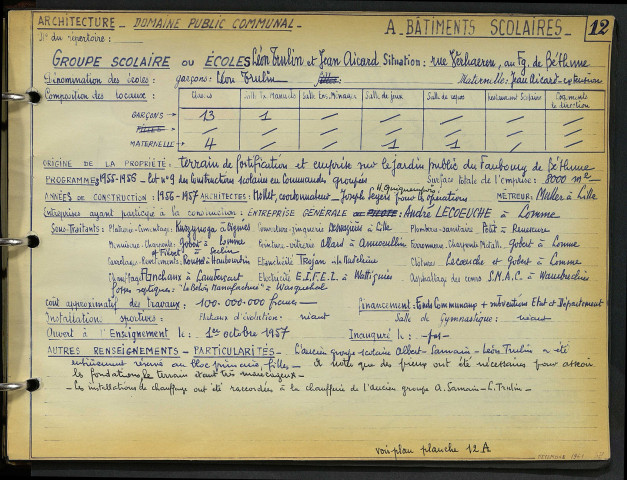 ARCHITECTURE - DOMAINE PUBLIC COMMUNAL - A - BÂTIMENTS SCOLAIRES - 12
N° du répertoire :
GROUPE SCOLAIRE ou ÉCOLES Léon Trulin et Jean Aicard Situation : rue Verhaeren, au Fg. de Béthune
Dénomination des écoles : garçons : Léon Trulin filles : Maternelle : Jean Aicard - extension
Composition des locaux : Classes Salle Tx Manuels Salle Ens. Ménager Salle de jeux Salle de repos Restaurant Scolaire Logements de direction
GARÇONS → 13 1
FILLES
MATERNELLE → 4 1 1
ORIGINE DE LA PROPRIÉTÉ : terrain de fortification et emprise sur le jardin public du Faubourg de Béthune
PROGRAMME : 1955-1956 - lot n° 9 de Constructions scolaires en Commandes groupées Surface totale de l'emprise : 8000 m2
ANNÉES DE CONSTRUCTION : 1956-1957 ARCHITECTES : Mollet, coordonnateur - Joseph Segers pour l'opération MÉTREUR : Muller à Lille
Entreprises ayant participé à la construction : ENTREPRISE GÉNÉRALE ou PILOTE : André LECOEUCHE à Lomme
Sous-Traitants : Platrerie-Cimentage : à Oignies Couverture-zinguerie à Lille Plomberie sanitaire Petit à
Menuiserie-Charpente : Gobert à Lomme Peinture-vitrerie Allard à Annoeullin Ferronnerie-Charpente Métall. Gobert à Lomme
et à Seclin
Carrelages-Revêtements : Roussel à Haubourdin Etanchéité Trojan à La Madeleine Clôtures Lecoeuche et Gobert à Lomme
Chauffage Planchaux à Lambersart Electricité E.S.F.E.L. à Wattignies Asphaltage des cours S.M.A.C. à Wambrechies
fosses septiques : "Le Béton Manufacturé" à Wasquehal
coût approximatif des travaux : 100.000.000 francs - Financement : Fonds Communaux + subventions Etat et Département
Installations sportives : Plateaux d'évolution : néant Salle de Gymnastique : néant
Ouvert à l'Enseignement le : 1er octobre 1957 Inauguré le : -
AUTRES RENSEIGNEMENTS - PARTICULARITÉS - L'ancien groupe scolaire Albert-Samain - Léon Trulin a été
entièrement réservé au bloc primaire filles - à noter que des pieux ont été nécessaires pour asseoir
les fondations, le terrain étant très marécageux -
- Les installations de chauffage ont été raccordées à la chaufferie de l'ancien groupe A. Samain - L. Trulin -
voir plan planche 12 A